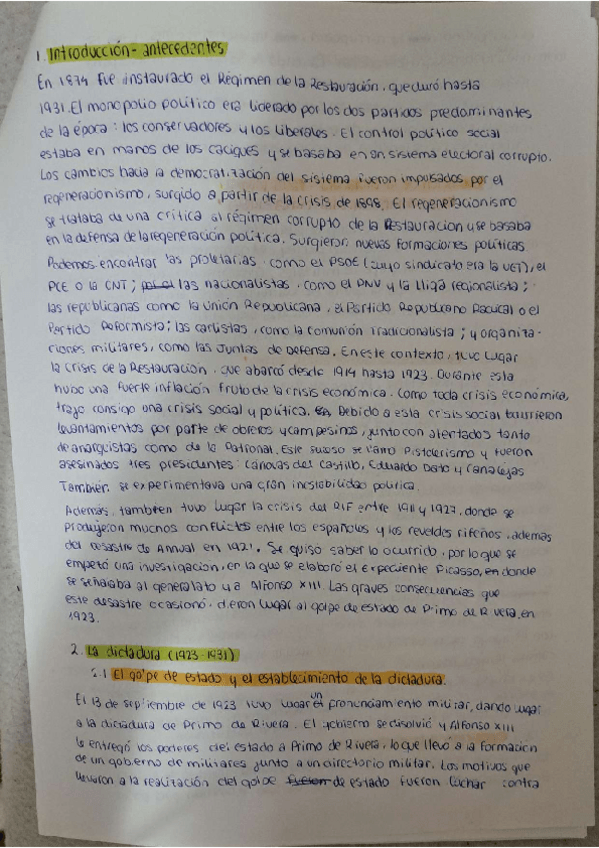 1. Introducción - antecedentes
En 1874 fue instaurado el Régimen de la Restauración, que duró hasta
1931. El monopolio político era liderado por los dos partidos predominantes
de la época: los conservadores y los liberales. El control político social
estaba en manos de los caciques y se basaba en un sistema electoral corrupto.
Los cambios hacia la democratización del sistema fueron impulsados por el
regeneracionismo, surgido a partir de la crisis de 1898. El regeneracionismo
se trataba de una crítica al régimen corrupto de la Restauración y se basaba
en la defensa de la regeneración política. Surgieron nuevas formaciones políticas.
Podemos encontrar las proletarias como el PSOE (cuyo sindicato era la UGT), el
PCE o la CNT; las nacionalistas, como el PNV y la Lliga regionalista;
las republicanas como la Unión Republicana, el Partido Republicano Radical o el
Partido Reformista; las carlistas, como la comunión tradicionalista; y organiza-
ciones militares, como las Juntas de Defensa. En este contexto, tuvo lugar
la crisis de la Restauración, que abarcó desde 1914 hasta 1923. Durante esta
hubo una fuerte inflación fruto de la crisis económica. Como toda crisis económica,
trajo consigo una crisis social y política. Debido a esta crisis social ocurrieron
levantamientos por parte de obreros y campesinos, junto con atentados tanto
de anarquistas como de la Patronal. Este suceso se llamó Pistolerismo y fueron
asesinados tres presidentes: Cánovas del Castillo, Eduardo Dato y Canalejas
También se experimentava una gran inestabilidad política.
Además, también tuvo lugar la crisis del RIF entre 1911 y 1927, donde se
produjeron muchos conflictos entre los españoles y los reveldes rifeños, además
del desastre de Annual en 1921. Se quiso saber lo ocurrido, por lo que se
empezó una investigación, en la que se elaboró el expeciente Picasso, en donde
se señalaba al generalato y a Alfonso XIII. Las graves consecuencias que
este desastre ocasionó, dieron lugar al golpe de estado de Primo de Rivera, en
1923.
2. La dictadura (1923-1931)
2.1 El golpe de estado y el establecimiento de la dictadura.
El 13 de septiembre de 1923 tuvo lugar un pronunciamiento militar, dando lugar
a la dictadura de Primo de Rivera. El gobierno se disolvió y Alfonso XIII
le entregó los poderes del estado a Primo de Rivera, lo que llevó a la formación
de un gobierno de militares junto a un directorio militar. Los motivos que
llevaron a la realización del golpe de estado fueron luchar contra